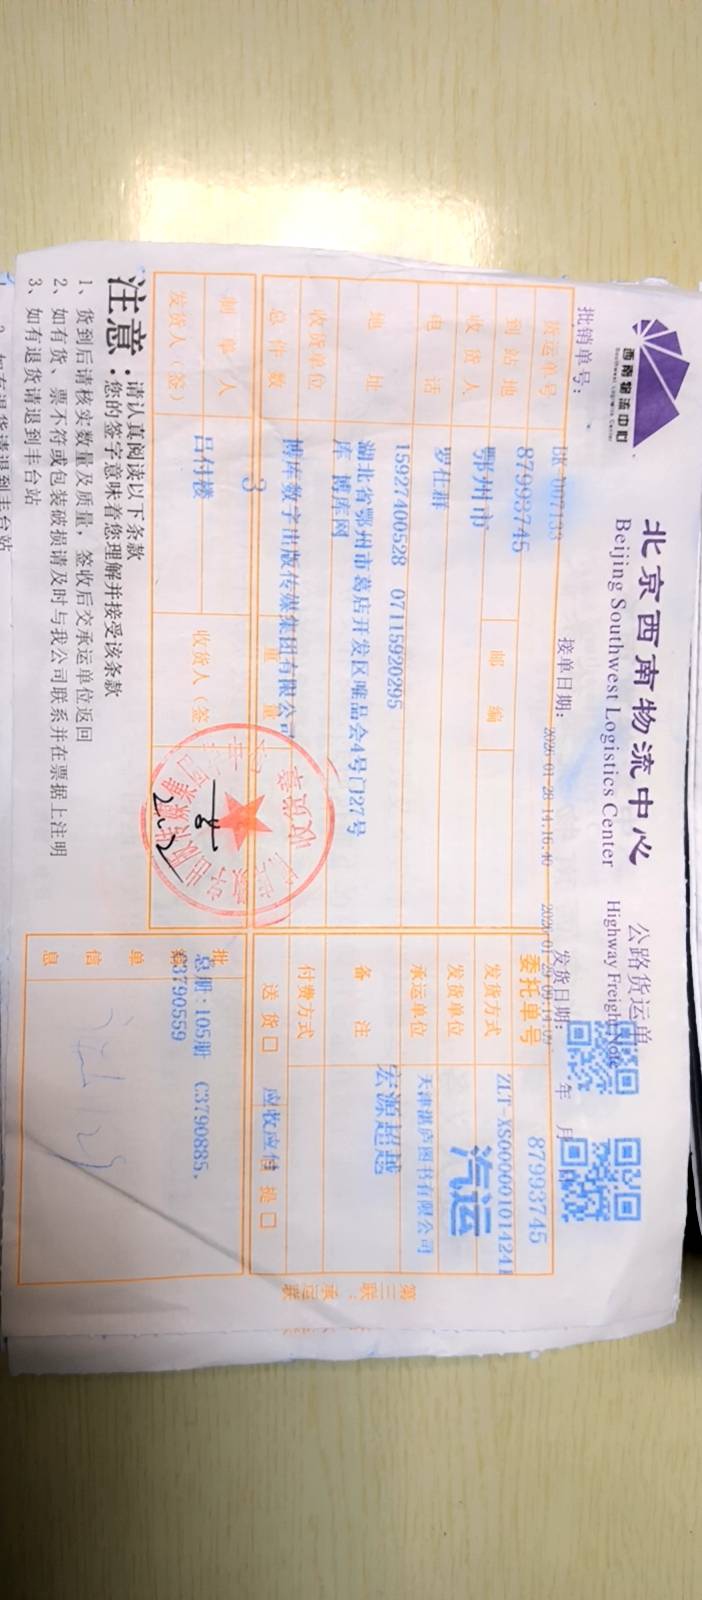 西南物流中心
Southwest Logistics Center
北京西南物流中心 公路货运单
Beijing Southwest Logistics Center Highway Freight Note
批销单号: 接单日期: 2026-01-28 14:16:40 发货日期: 年 月
货运单号 87993745 委托单号 87993745
ZLT-XS000001014241
到站地 鄂州市 邮编 发货方式 汽运
收货人 罗仕群 发货单位 天津湛庐图书有限公司
电话 15927400528 07115920295 承运单位 宏源超越
地址 湖北省鄂州市葛店开发区唯品会4号门27号
库 博库网
备注
收货单位 博库数字出版传媒集团有限公司 付费方式
总件数 3 重量 送货口 应收应付 提口
制单人 吕付楼 收货人(签
发货人(签)
批销单信息 总册:105册 C3790885,
C3790559
收货章
第三联:承运联
注意:请认真阅读以下条款
您的签字意味着您理解并接受该条款
1、货到后请核实数量及质量,签收后交承运单位返回
2、如有货、票不符或包装破损请及时与我公司联系并在票据上注明
3、如有退货请退到丰台站